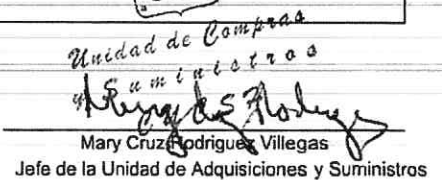 Unidad de Compras
y Suministros
Mary Cruz Rodriguez Villegas
Jefe de la Unidad de Adquisiciones y Suministros